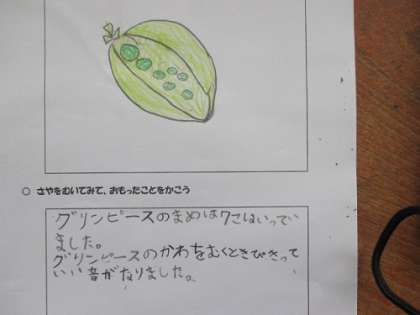 ○ さやをむいてみて、おもったことをかこう
グリンピースのまめは7こはいってい
ました。
グリンピースのかわをむくときぴきって
いい音がなりました。